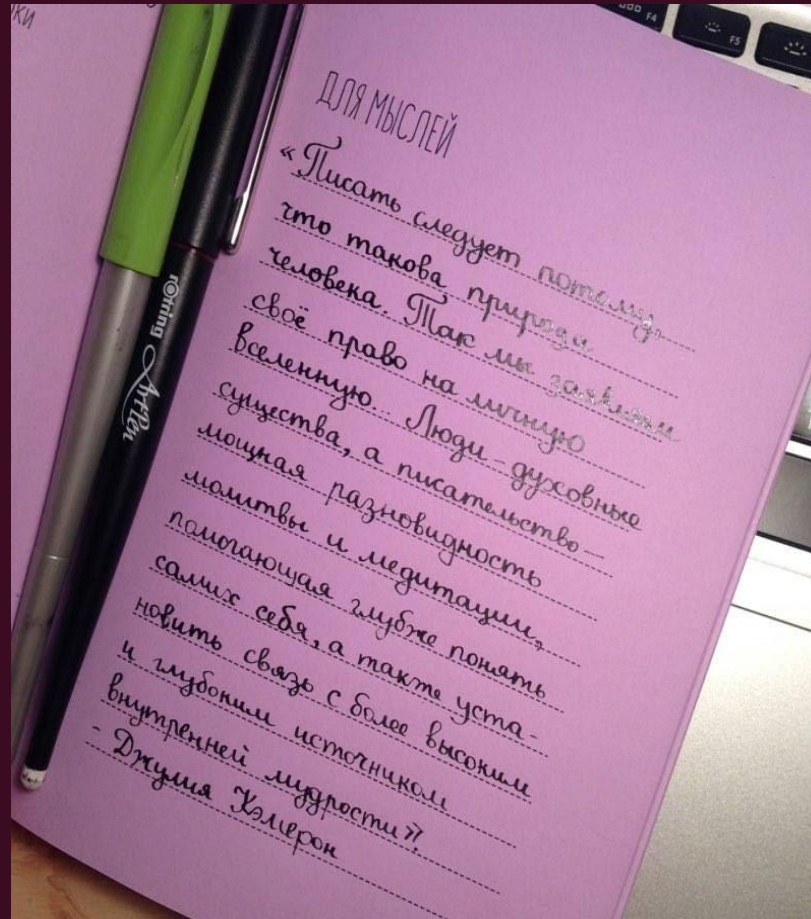 ки
F4
F5
rOtring ArtPen
ДЛЯ МЫСЛЕЙ
«Писать следует потому,
что такова природа
человека. Так мы заявляем
своё право на личную
вселенную... Люди – духовные
существа, а писательство –
мощная разновидность
молитвы и медитации,
помогающая глубже понять
самих себя, а также уста-
новить связь с более высоким
и глубоким источником
внутренней мудрости»
- Джулия Кэмерон